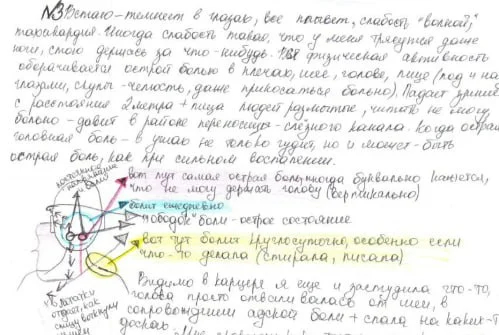 N3 Встаю – темнеет в глазах, все плывет, слабость "волной",
тахикардия. Иногда слабость такая, что у меня трясутся даже
ноги, стою держась за что-нибудь. физическая активность
оборачивается острой болью в плечах, шее, голове, лице (под и на
глазами, скулы-челюсть, даже прикасаться больно). Падает зрение
с расстояния 2 метра + лица людей размытые, читать не могу
больно – давит в районе переносицы – слезного канала. Когда острая
головная боль – в ушах не только гудит, но и может быть
острая боль, как при сильном воспалении.
вот тут самая острая боль, иногда буквально кажется,
что не могу держать голову (вертикально)
болит ежедневно
"ободок" боли – острое состояние
вот тут болит круглосуточно, особенно если
что-то делала (стирала, писала)
Видимо в карцере я еще и застудила что-то,
голова просто отваливалась от шеи, в
сопровождении адской боли + спала на каких-то
досках.
боли
отдает, как
спицу воткнули